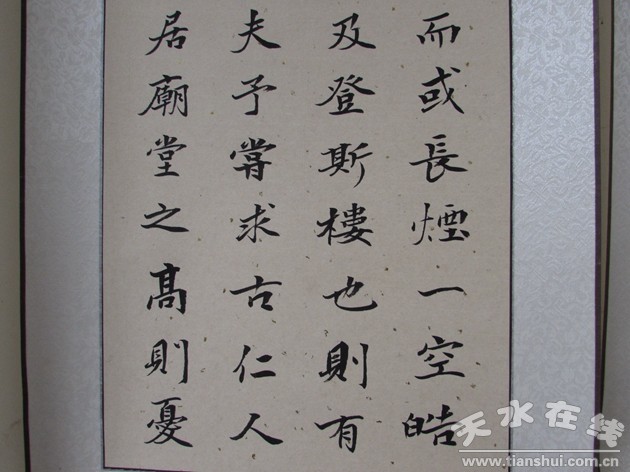 而或長煙一空皓
及登斯樓也則有
夫予嘗求古仁人
居廟堂之高則憂
天水在线
www.tianshui.com.cn